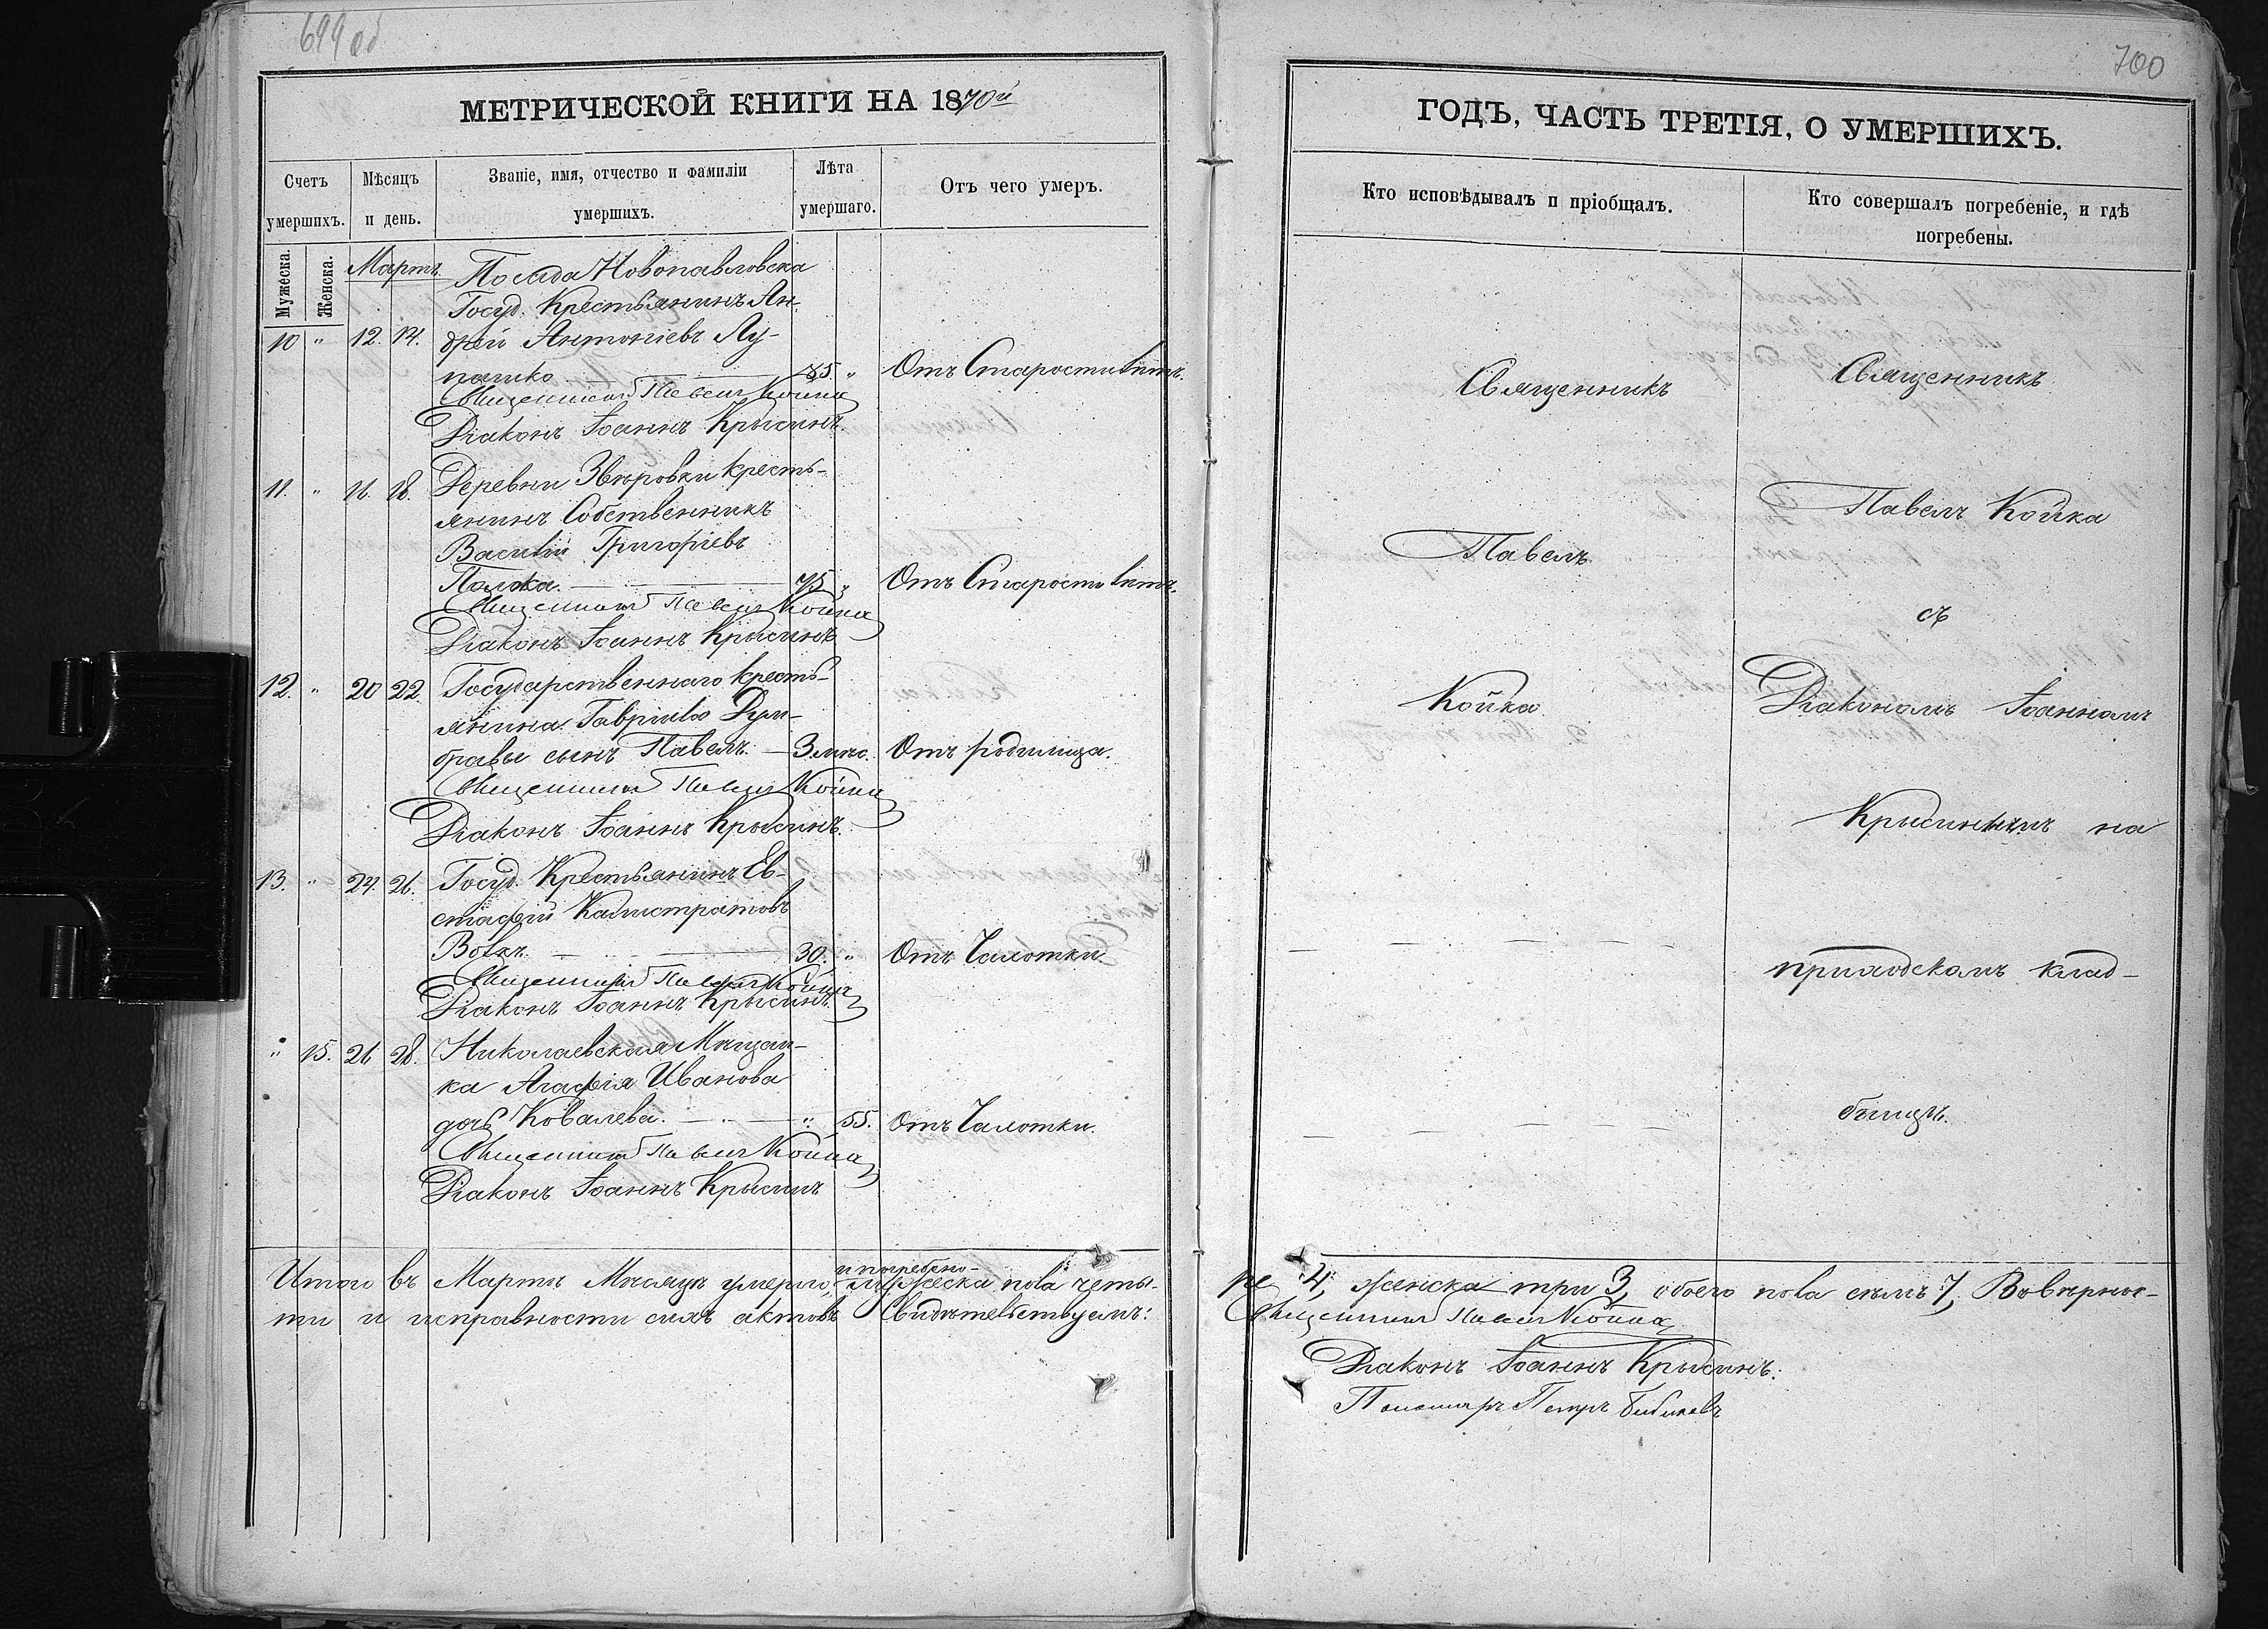 699 об
МЕТРИЧЕСКОЙ КНИГИ НА 1870й
Счетъ умершихъ.
Мѣсяцъ и день.
Званіе, имя, отчество и фамиліи умершихъ.
Лѣта умершаго.
Отъ чего умеръ.
Мужеска.
Женска.
Мартъ
Посада Новопавловска
Госуд. Крестьянинъ Ан-
10 " 12. 14. дрей Антоніевъ Лу-
пашко 85. " Отъ Старости лѣтъ.
Священникъ Павелъ Койка
Діаконъ Іоаннъ Крысинъ.
Деревни Звѣровки кресть-
11. " 16. 18. янинъ Собственникъ
Василій Григоріевъ
75 " Отъ Старости лѣтъ.
Священникъ Павелъ Койка
Діаконъ Іоаннъ Крысинъ
12. " 20 22. Государственнаго кресть-
янина Гавріила Дум-
бравы сынъ Павелъ. — 3 мѣс. Отъ родимца.
Священникъ Павелъ Койка
Діаконъ Іоаннъ Крысинъ.
13. " 24. 26. Госуд. Крестьянинъ Ев-
стафій Калистратовъ
Волкъ. 30. " Отъ Чахотки
Священникъ Павелъ Койка
Діаконъ Іоаннъ Крысинъ.
" 15. 26 28. Николаевская Мѣщан-
ка Агафія Иванова
дочь Ковалева. — " 55. Отъ Чахотки.
Священникъ Павелъ Койка
Діаконъ Іоаннъ Крысинъ
и погребено
Итого въ Мартѣ Мѣсяцѣ умерло, мужеска пола четы-
ти и исправности сихъ актовъ Свидѣтельствуемъ:
700
ГОДЪ, ЧАСТЬ ТРЕТІЯ, О УМЕРШИХЪ.
Кто исповѣдывалъ и пріобщалъ.
Кто совершалъ погребеніе, и гдѣ погребены.
Священникъ
Павелъ
Койка
Священникъ
Павелъ Койка
съ
Діакономъ Іоанномъ
Крысинымъ на
приходскомъ клад-
бищѣ.
ре 4, женска три 3, обоего пола семь 7, Въ вѣрнос-
Священникъ Павелъ Койка
Діаконъ Іоаннъ Крысинъ.
Пономарь Петръ